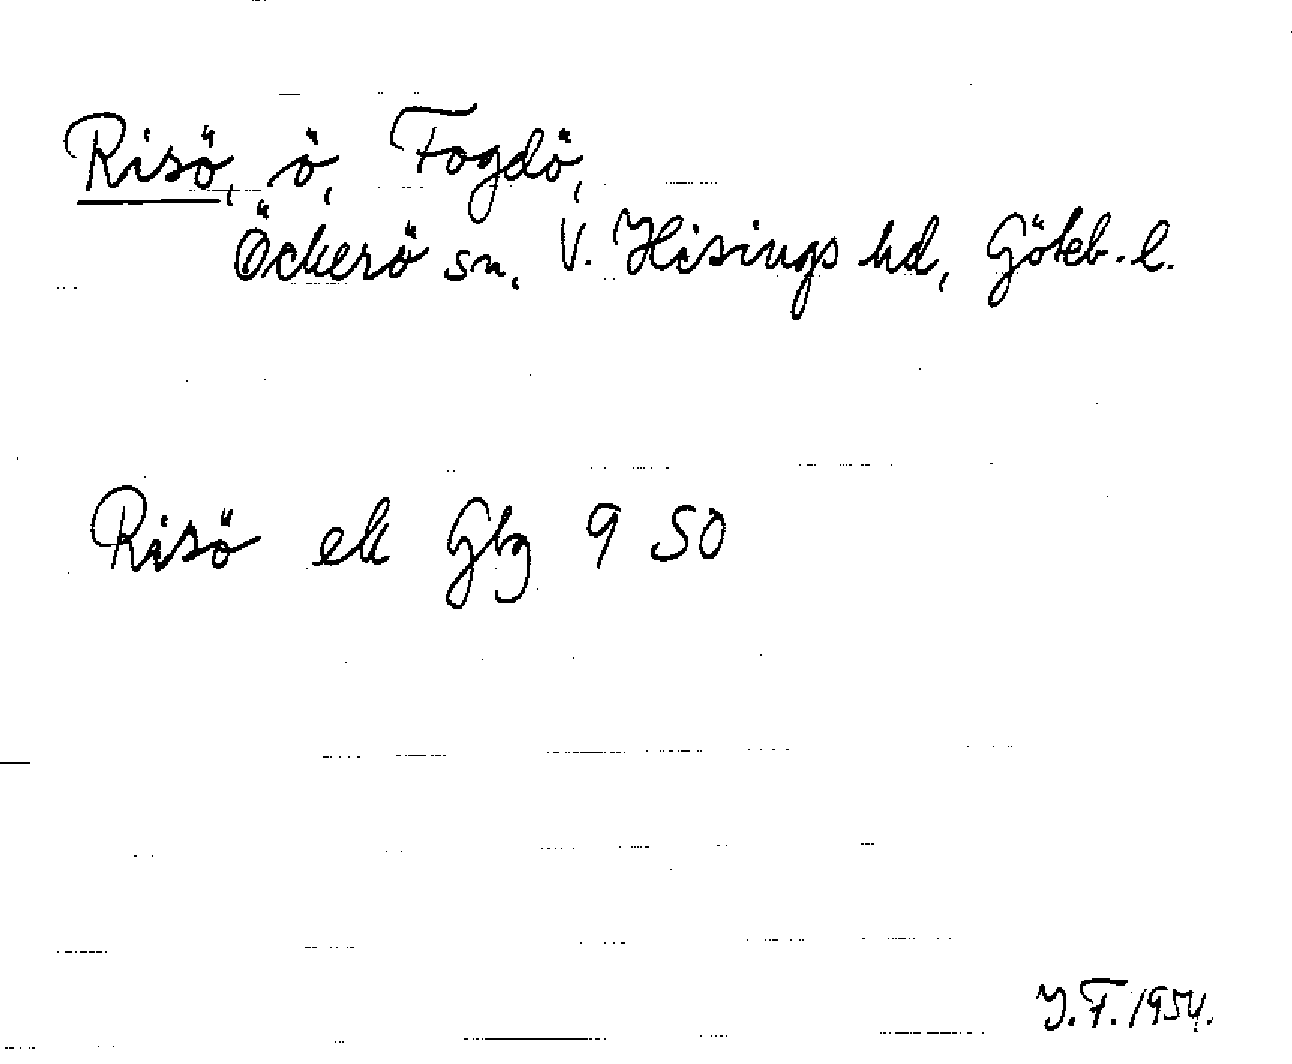 Risö, ö, Fogdö,
Öckerö sn. V. Hisings hd, Göteb. l.
Risö ek Gbg 9 SO
I.F. 1954.